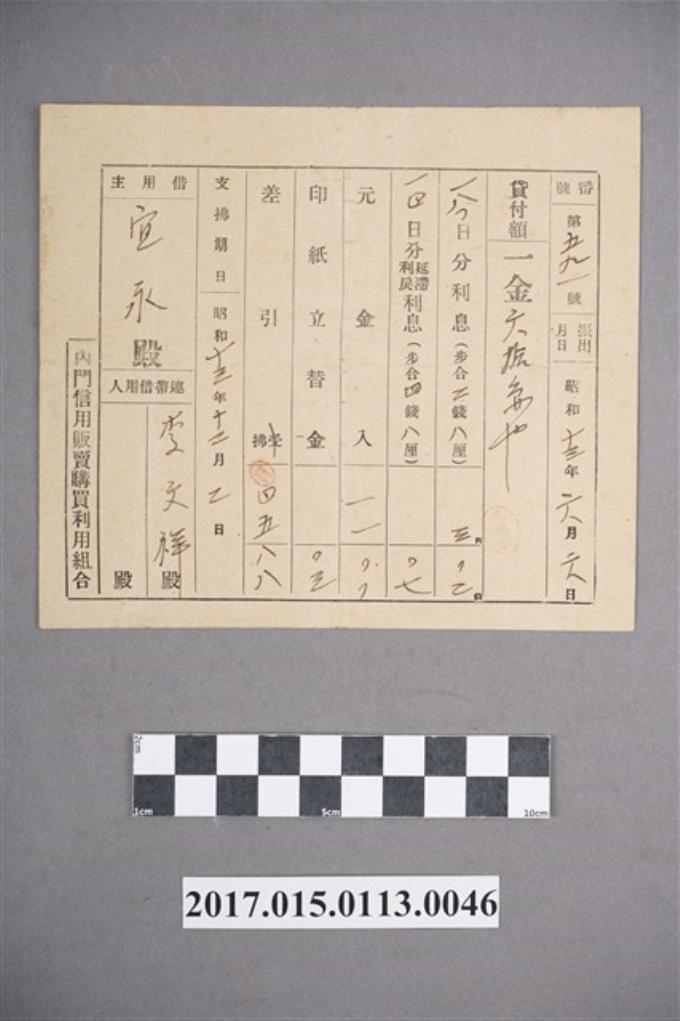 番號 第五九一號 張出月日 昭和十三年六月六日
貸付額 一金六拾円也
日分利息（步合二錢八厘） 三 〇二
一四日分延滯利戾利息（步合四錢八厘） 〇七
元金入 一一 〇〇
印紙立替金 〇三
差引 拂 四五 八八
支拂期日 昭和十三年十二月 日
借用主 宜永殿
連帶借用人 李文祥殿
殿
內門信用販賣購買利用組合
2cm
1cm 5cm 10cm
2017.015.0113.0046